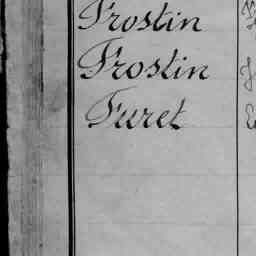 Frostin
Frostin
Furet